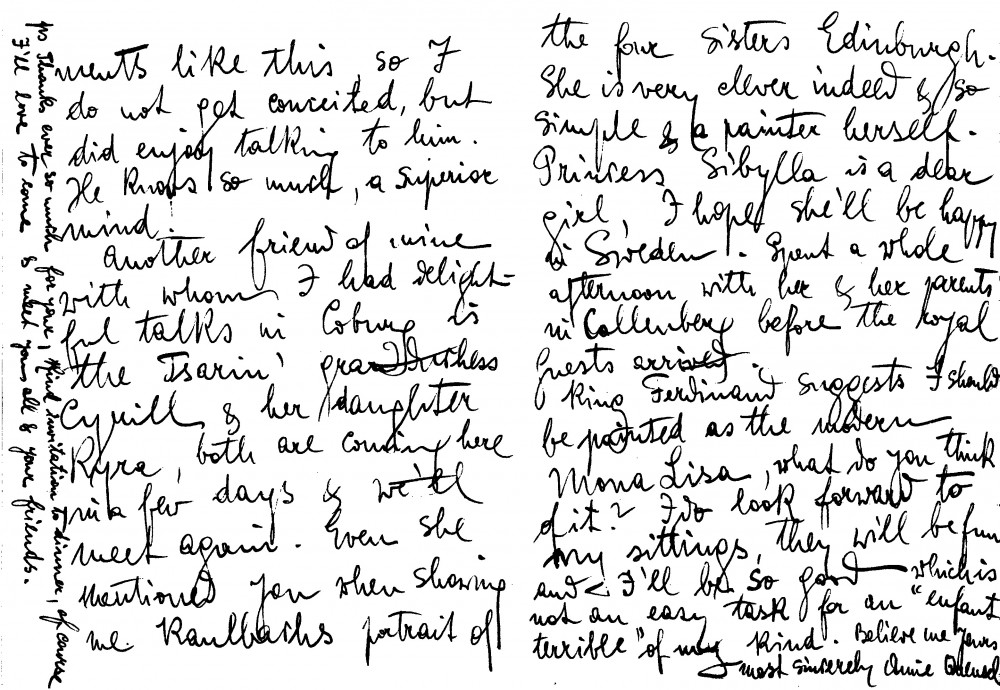 ments like this, so I
do not get conceited, but
did enjoy talking to him.
He knows so much, a superior
mind.
Another friend of mine
with whom I had delight-
ful talks in Coburg is
the Tsarin' grandduchess
Cyrill & her daughter
Kyra, both are coming here
in a few days & we'll
meet again. Even she
mentioned you when showing
me Kaulbachs portrait of
the four sisters Edinburgh.
She is very clever indeed & so
simple & a painter herself.
Princess Sibylla is a dear
girl, I hope she'll be happy
in Sweden. Spent a whole
afternoon with her & her parents
in Callenberg before the royal
guests arrived.
King Ferdinand suggests I should
be painted as the modern
Mona Lisa, what do you think
of it? I do look forward to
my sittings, they will be fun
and I'll be so good which is
not an easy task for an "enfant
terrible" of my kind. Believe me yours
most sincerely
ps Thanks ever so much for your, kind invitation to dinner, of course
I'll love to come & meet you all & your friends.